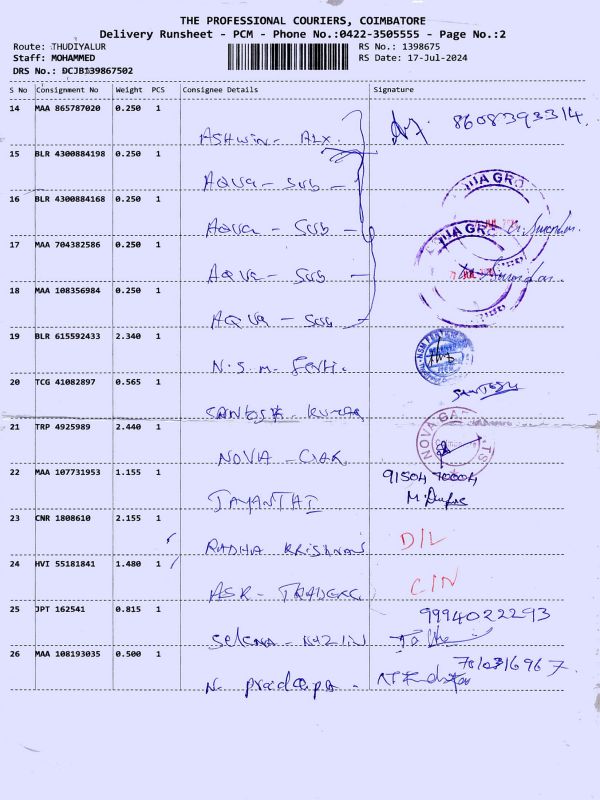 THE PROFESSIONAL COURIERS, COIMBATORE
Delivery Runsheet - PCM - Phone No.:0422-3505555 - Page No.:2
Route: THUDIYALUR RS No.: 1398675
Staff: MOHAMMED RS Date: 17-Jul-2024
DRS No.: DCJB139867502
S No Consignment No Weight PCS Consignee Details Signature
14 MAA 865787020 0.250 1 8608393314
ASHWIN - ALX
15 BLR 4300884198 0.250 1
AQUA - SUB
16 BLR 4300884168 0.250 1
AQUA - SUB
17 MAA 704382586 0.250 1
AQUA - SUB
18 MAA 108356984 0.250 1
AQUA - SUB
19 BLR 615592433 2.340 1
N.S.M. Ferti.
20 TCG 41082897 0.565 1 SANTOSH
SANTOSH KUMAR
21 TRP 4925989 2.440 1 NOVA
NOVA - GAR
22 MAA 107731953 1.155 1 91504 70004
JAYANTHI
23 CNR 1808610 2.155 1 D/L
RADHA KRISHNAN
24 HVI 55181841 1.480 1 C/N
ASR - TRADERS
25 JPT 162541 0.815 1 9994022293
Selena
26 MAA 108193035 0.500 1
N. pradeepa